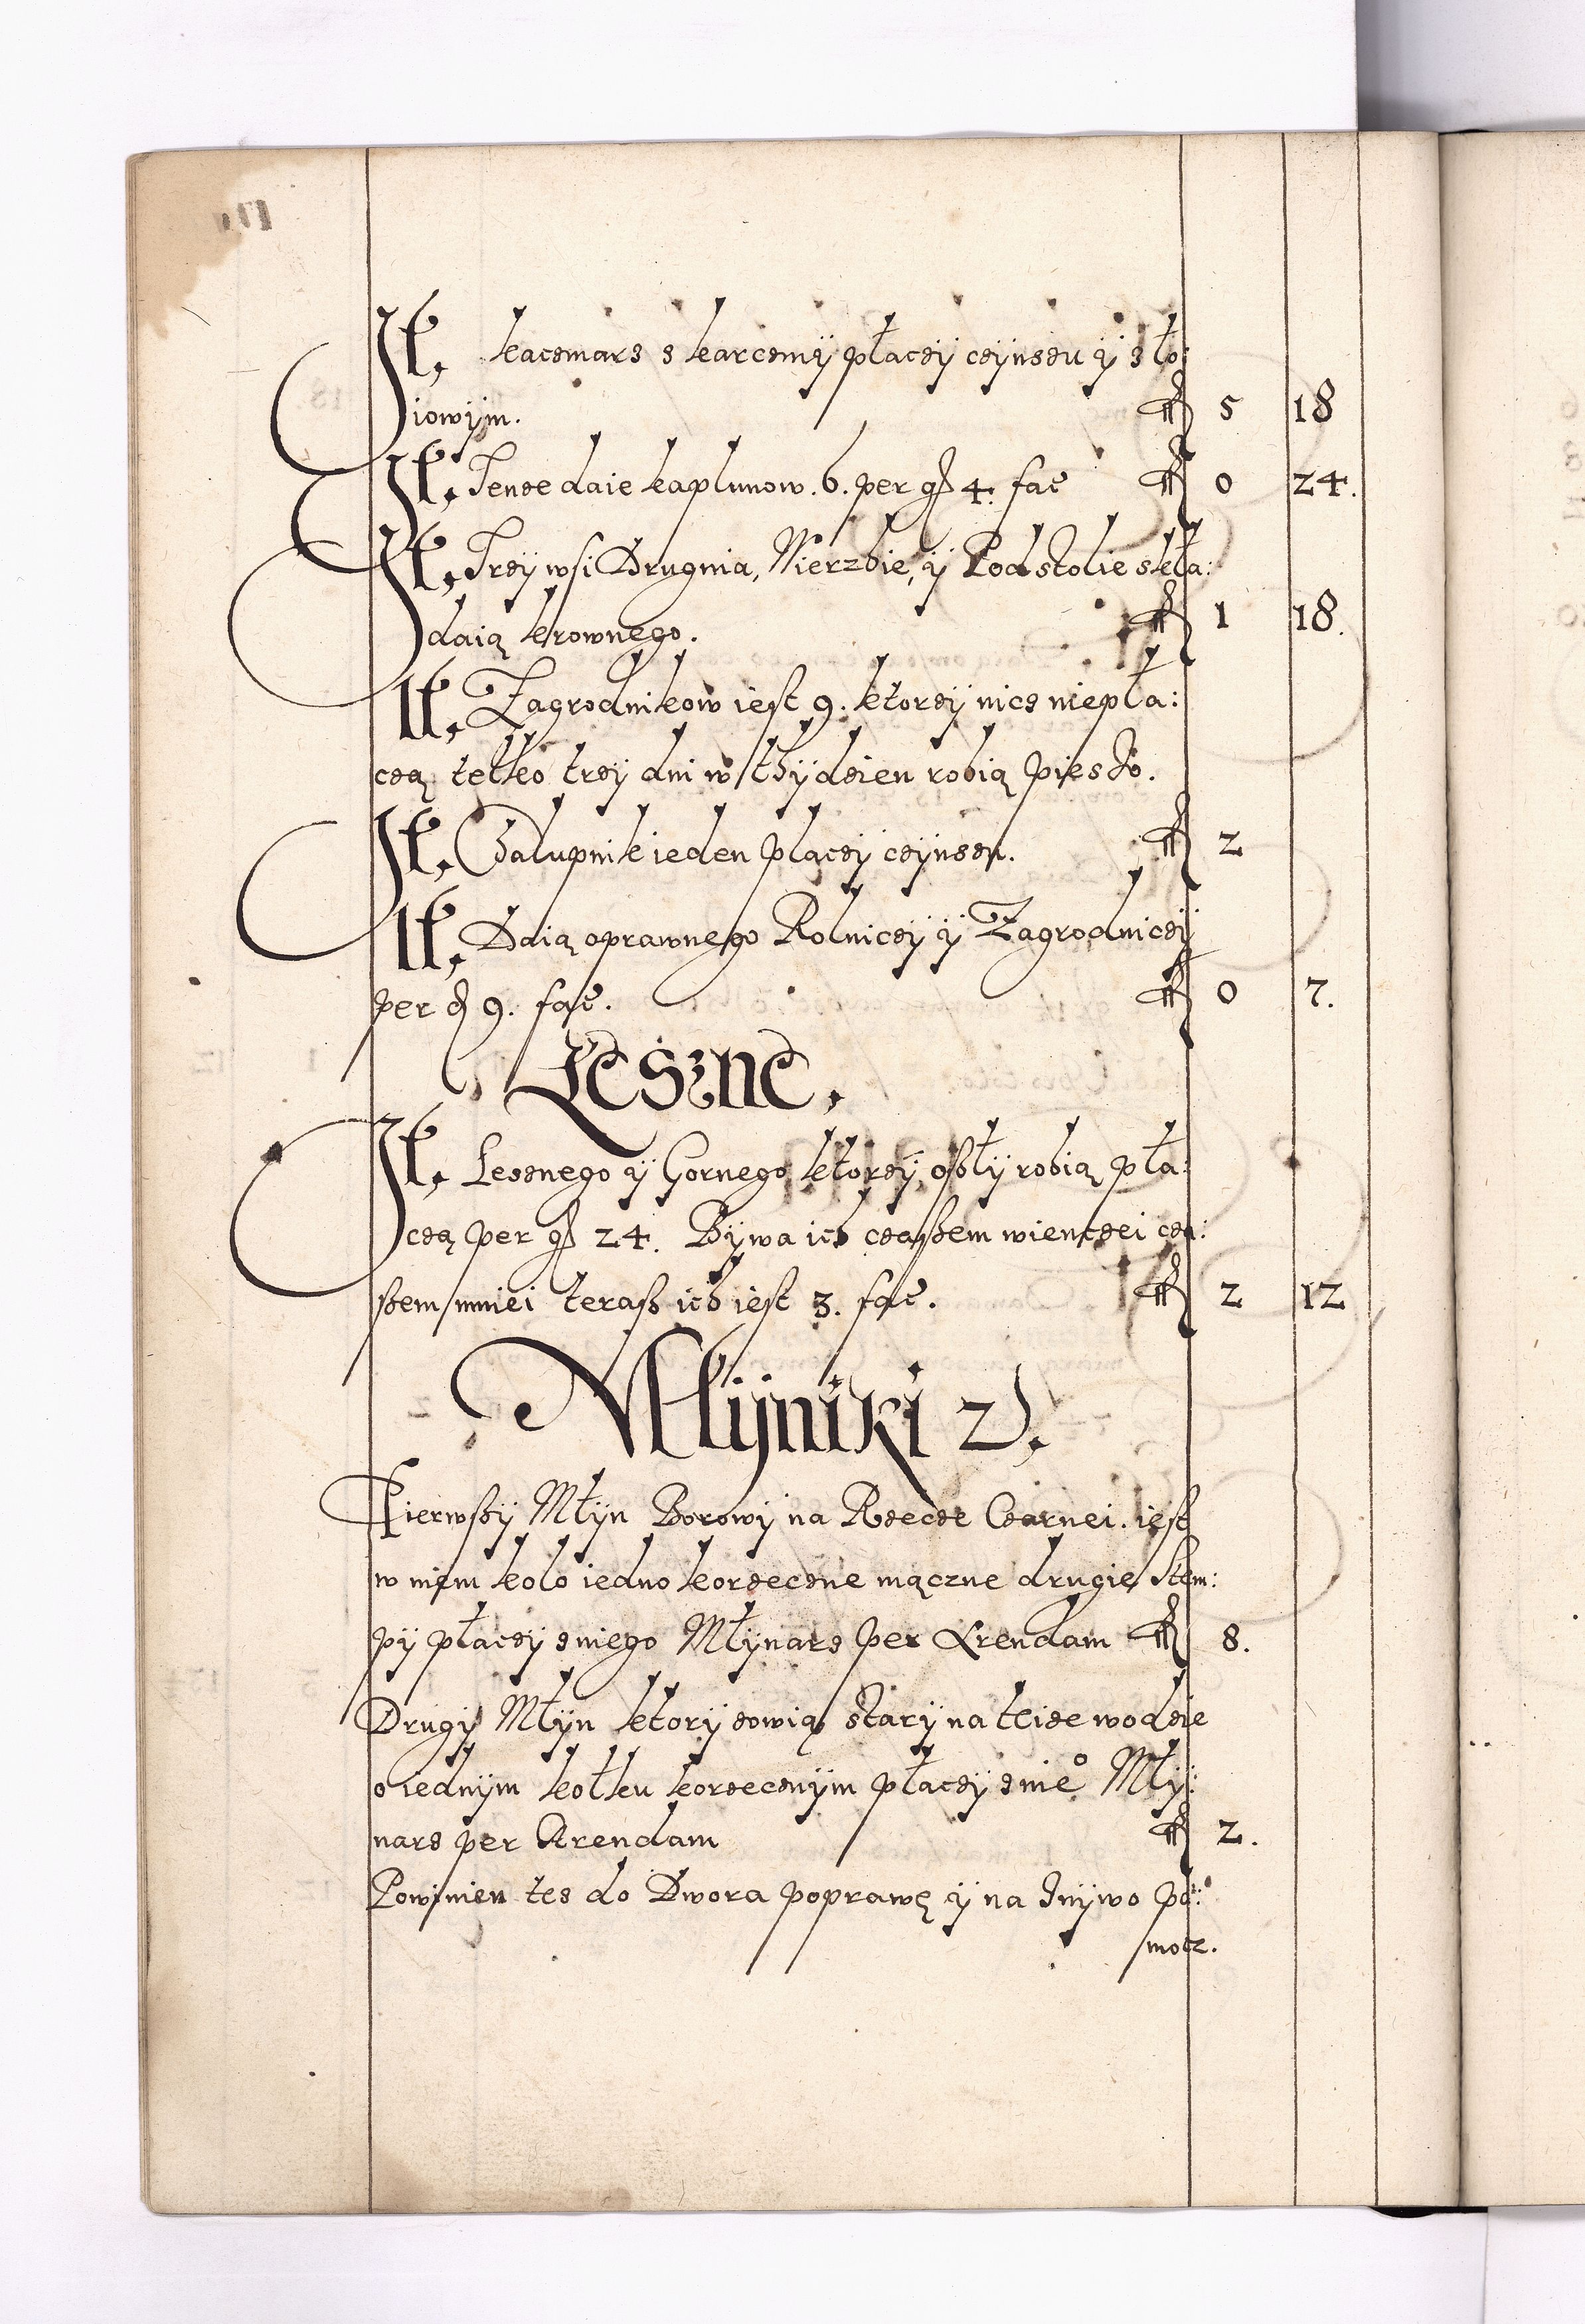 It. kaczmarz z karczmÿ płaczÿ czÿnszu ÿ z ło:
iowÿm. fl 5 18
It. Tenze daie kapłunow. 6. per gr 4. fac̄ fl 0 24.
It. Trzÿ wsi Drugnia, Wierzbie, ÿ Podstolie skła:
daią krownego. fl 1 18.
It. Zagrodnikow iest 9. ktorzÿ nicz niepła:
czą telko trzÿ dni w thÿdzien robią piesko.
It. Chalupnik ieden płaczÿ czÿnszu. fl 2
It. Daią oprawnego Rolniczÿ ÿ Zagrodniczÿ
per d 9. fac̄. fl 0 7.
Leszne.
It. Lesznego ÿ Gornego ktorzÿ ossłÿ robią pła:
czą per gr 24. Bÿwa ich czaßem wienczei cza:
ßem mniei teraß ich iest 3. fac̄. fl 2 12
Młÿniki 2.
Pierwßÿ Młÿn Borowÿ na Rzecze Czarnei. iest
w niem koło iedno korzeczne mączne drugie stem:
pÿ płaczÿ zniego Młÿnarz per Arendam fl 8.
Drugÿ Młÿn ktorÿ zowią starÿ na teize wodzie
o iednÿm kołku korzecznÿm płaczÿ znie° Młÿ:
narz per Arendam fl 2.
Powinien tez do Dwora poprawę ÿ na znÿwo po:
mocz.